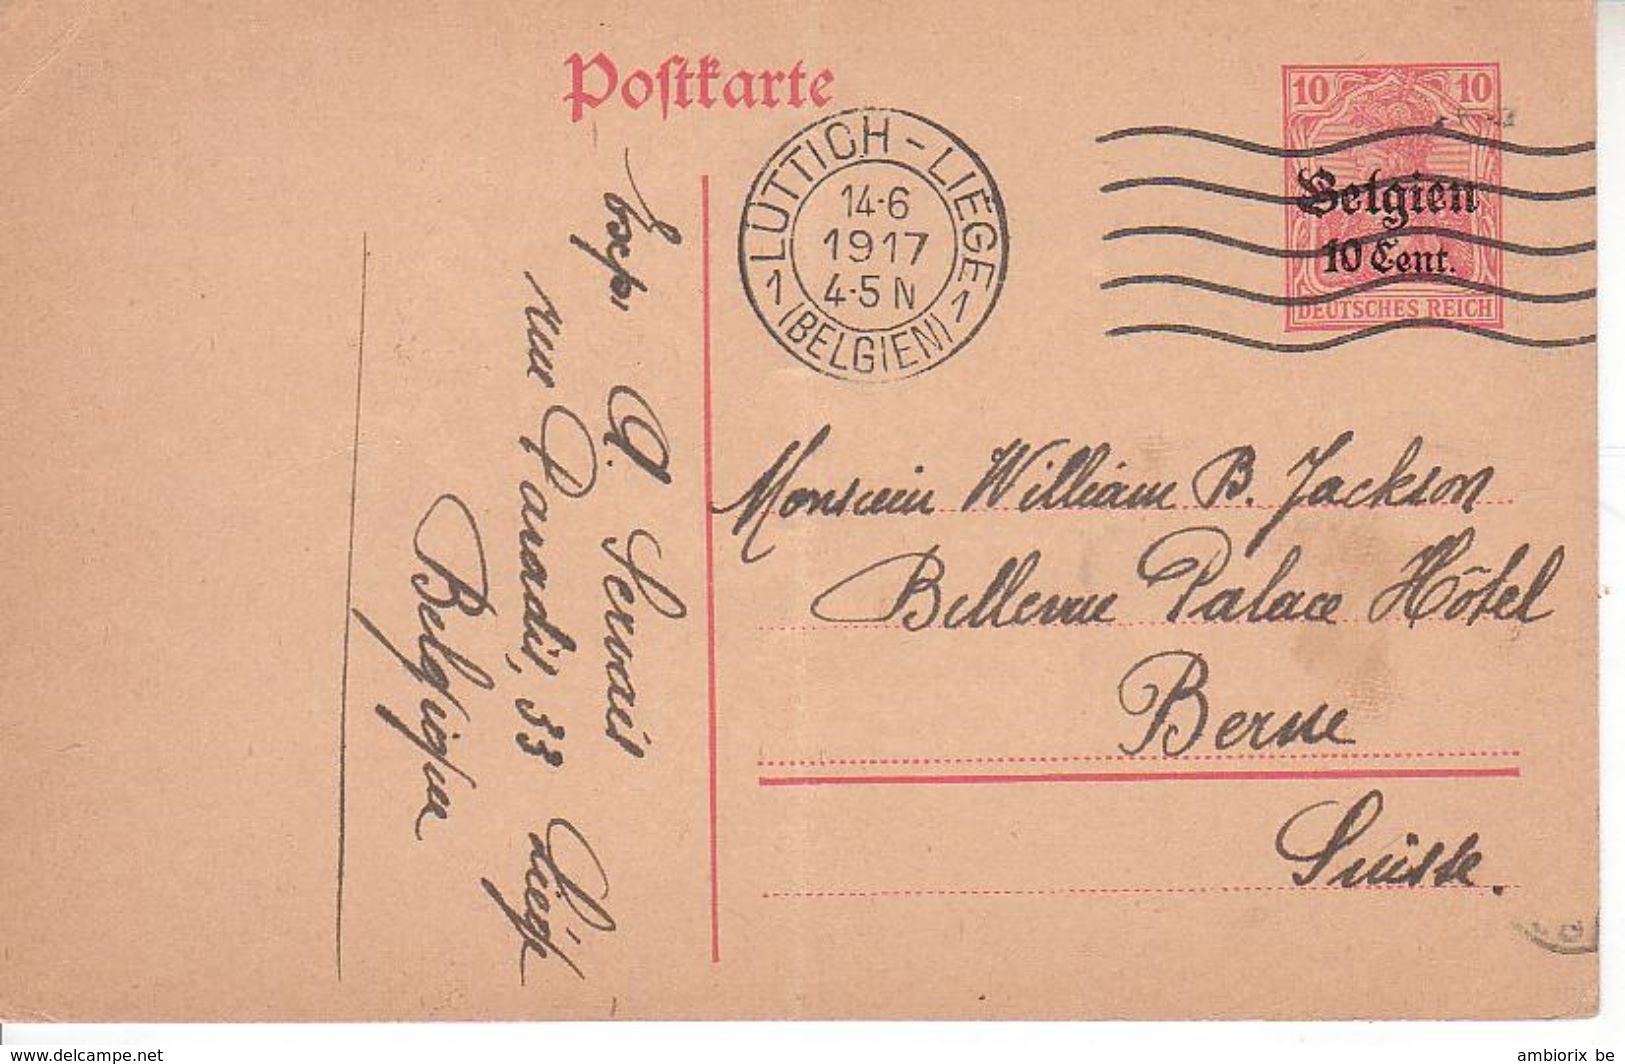 Postkarte
10 10
Belgien
10 Cent.
DEUTSCHES REICH
LÜTTICH - LIÉGE
14·6
1917
4-5 N
1 (BELGIEN) 1
Exp. A. Servais
rue Paradis, 33 Liége
Belgique
Monsieur William B. Jackson
Bellevue Palace Hôtel
Berne
Suisse.
www.delcampe.net
ambiorix be